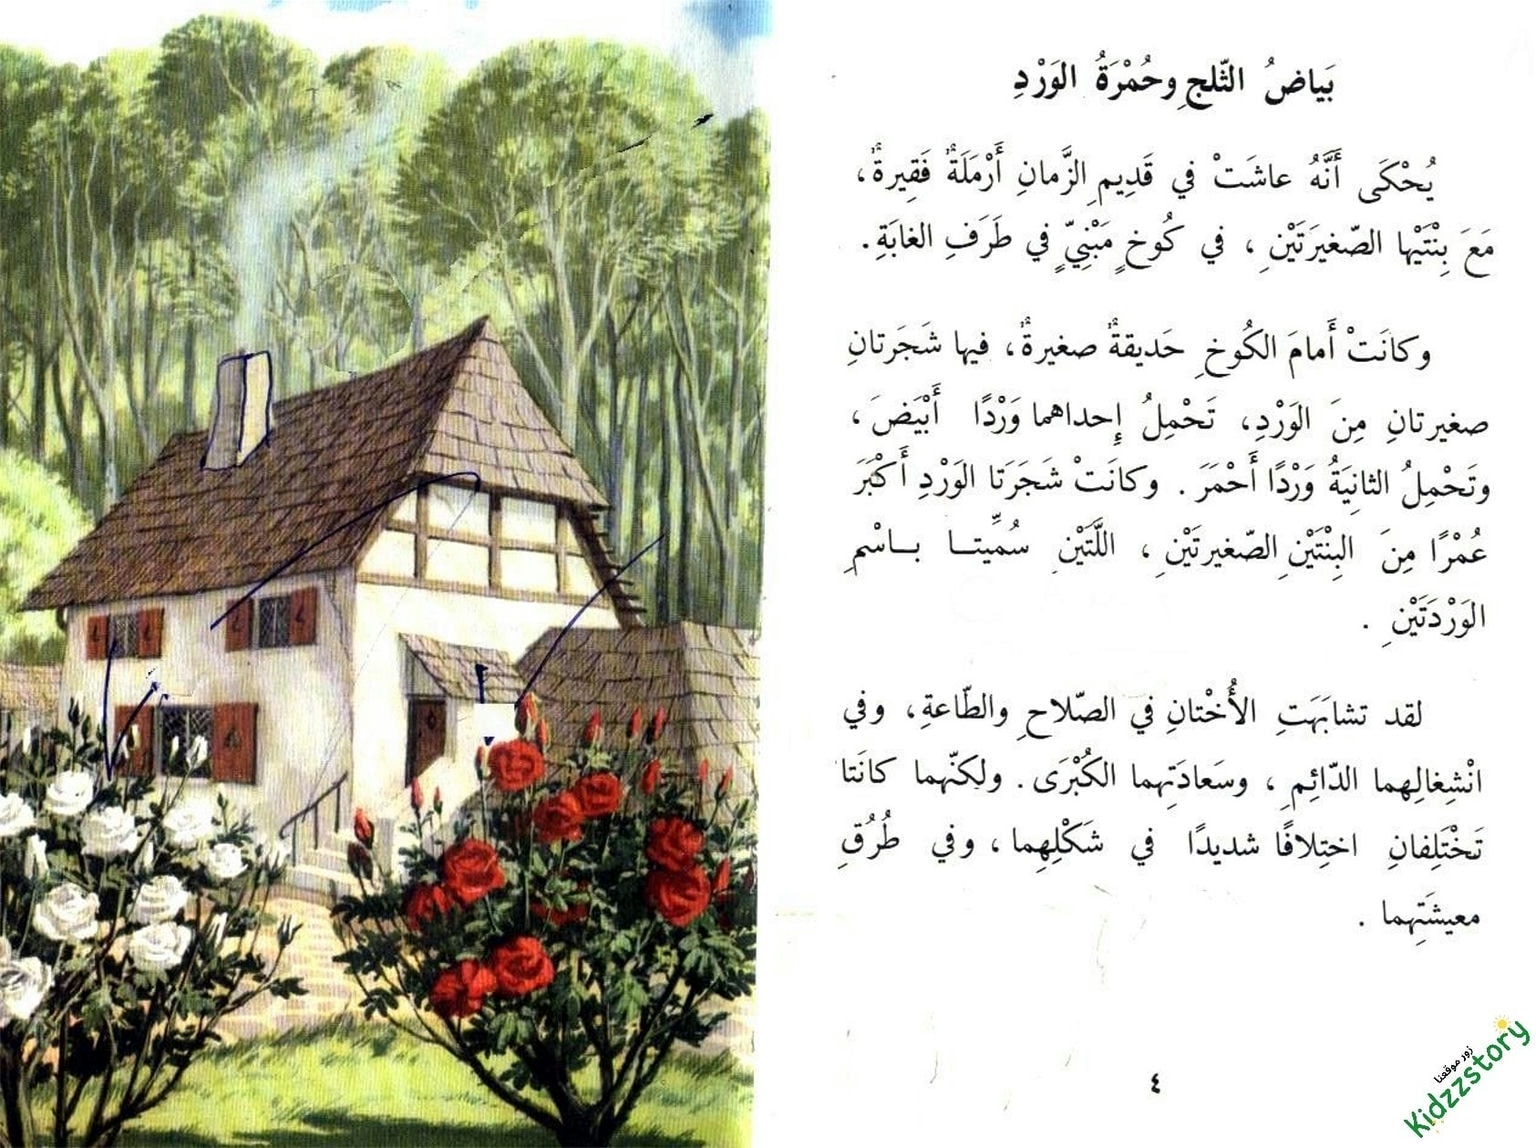 بَياضُ الثّلجِ وحُمْرَةُ الوَرْدِ
يُحْكَى أَنَّهُ عاشَتْ في قَدِيمِ الزَّمانِ أَرْمَلَةٌ فَقِيرةٌ،
مَعَ بِنْتَيْها الصّغيرَتَيْنِ ، في كُوخٍ مَبْنِيٍّ في طَرَفِ الغابَةِ .
وكانَتْ أَمامَ الكُوخِ حَديقةٌ صغيرةٌ، فيها شَجَرتانِ
صغيرتانِ مِنَ الوَرْدِ، تَحْمِلُ إِحداهما وَرْدًا أَبْيَضَ ،
وتَحْمِلُ الثانِيَةُ وَرْدًا أَحْمَرَ . وكانَتْ شَجَرَتا الوَرْدِ أَكْبَرَ
عُمْرًا مِنَ البِنْتَيْنِ الصّغيرتَيْنِ ، اللَّتَيْنِ سُمِّيتــا بــاسْمِ
الوَرْدَتَيْنِ .
لقد تشابَهَتِ الأُخْتانِ في الصّلاحِ والطّاعةِ، وفي
انْشِغالِهما الدّائِمِ ، وسَعادَتِهما الكُبْرَى . ولكنّهما كانَتا
تَخْتَلِفانِ اختِلافًا شديدًا في شَكْلِهِما ، وفي طُرُقِ
معيشَتِهما .
٤
زور موقعنا
Kidzzstory